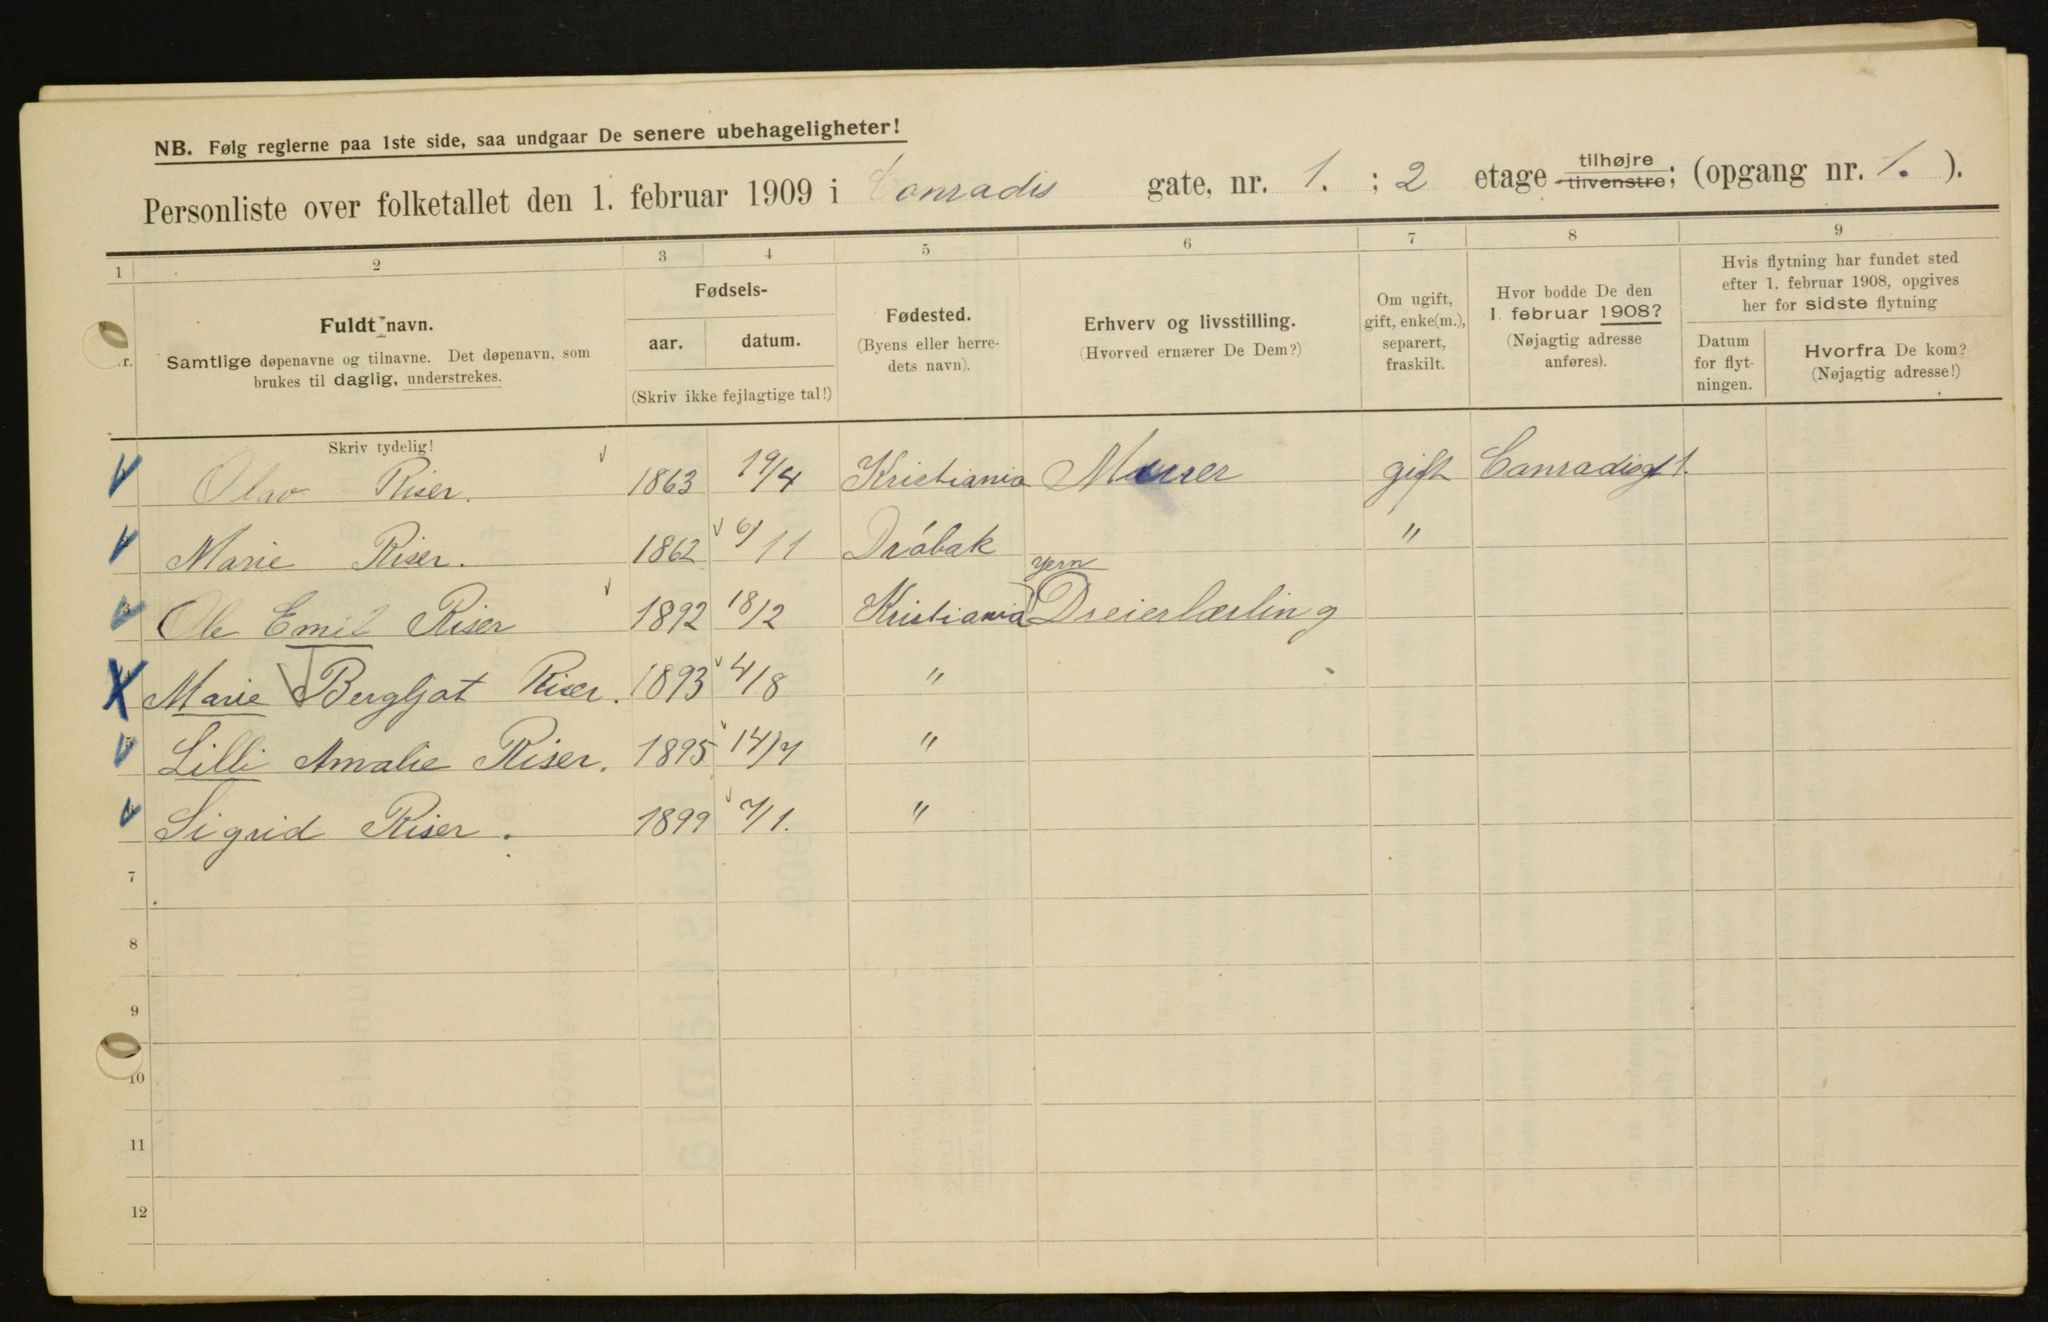 NB. Følg reglerne paa 1ste side, saa undgaar De senere ubehageligheter!
Personliste over folketallet den 1. februar 1909 i Conradis gate, nr. 1. ; 2 etage tilhøjre tilvenstre; (opgang nr. 1. ).
1 2 3 4 5 6 7 8 9
Fuldt navn.
Samtlige døpenavne og tilnavne. Det døpenavn, som
brukes til daglig, understrekes.
Fødsels-
aar. datum.
(Skriv ikke fejlagtige tal!)
Fødested.
(Byens eller herre-
dets navn).
Erhverv og livsstilling.
(Hvorved ernærer De Dem?)
Om ugift,
gift, enke(m.),
separert,
fraskilt.
Hvor bodde De den
1. februar 1908?
(Nøjagtig adresse
anføres).
Hvis flytning har fundet sted
efter 1. februar 1908, opgives
her for sidste flytning
Datum
for flyt-
ningen.
Hvorfra De kom?
(Nøjagtig adresse!)
Skriv tydelig!
Olav Riser. 1863 19/4 Kristiania Murer gift Conradisgt 1.
Marie Riser. 1862 6/11 Dröbak "
Ole Emil Riser 1892 18/2 Kristiania Jern Dreierlærling
Marie Bergljot Riser. 1893 4/8 "
Lilli Amalie Riser. 1895 14/7 "
Sigrid Riser. 1899 7/1. "
7
8
9
10
11
12